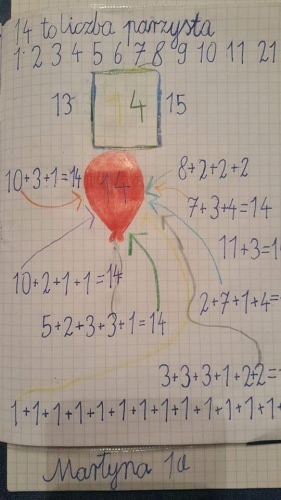 14 to liczba parzysta
1 2 3 4 5 6 7 8 9 10 11 21
13 14 15
14
10+3+1=14
8+2+2+2
7+3+4=14
11+3=1
10+2+1+1=14
2+7+1+4=
5+2+3+3+1=14
3+3+3+1+2+2=
1+1+1+1+1+1+1+1+1+1+1+1+1+
Martyna 1a